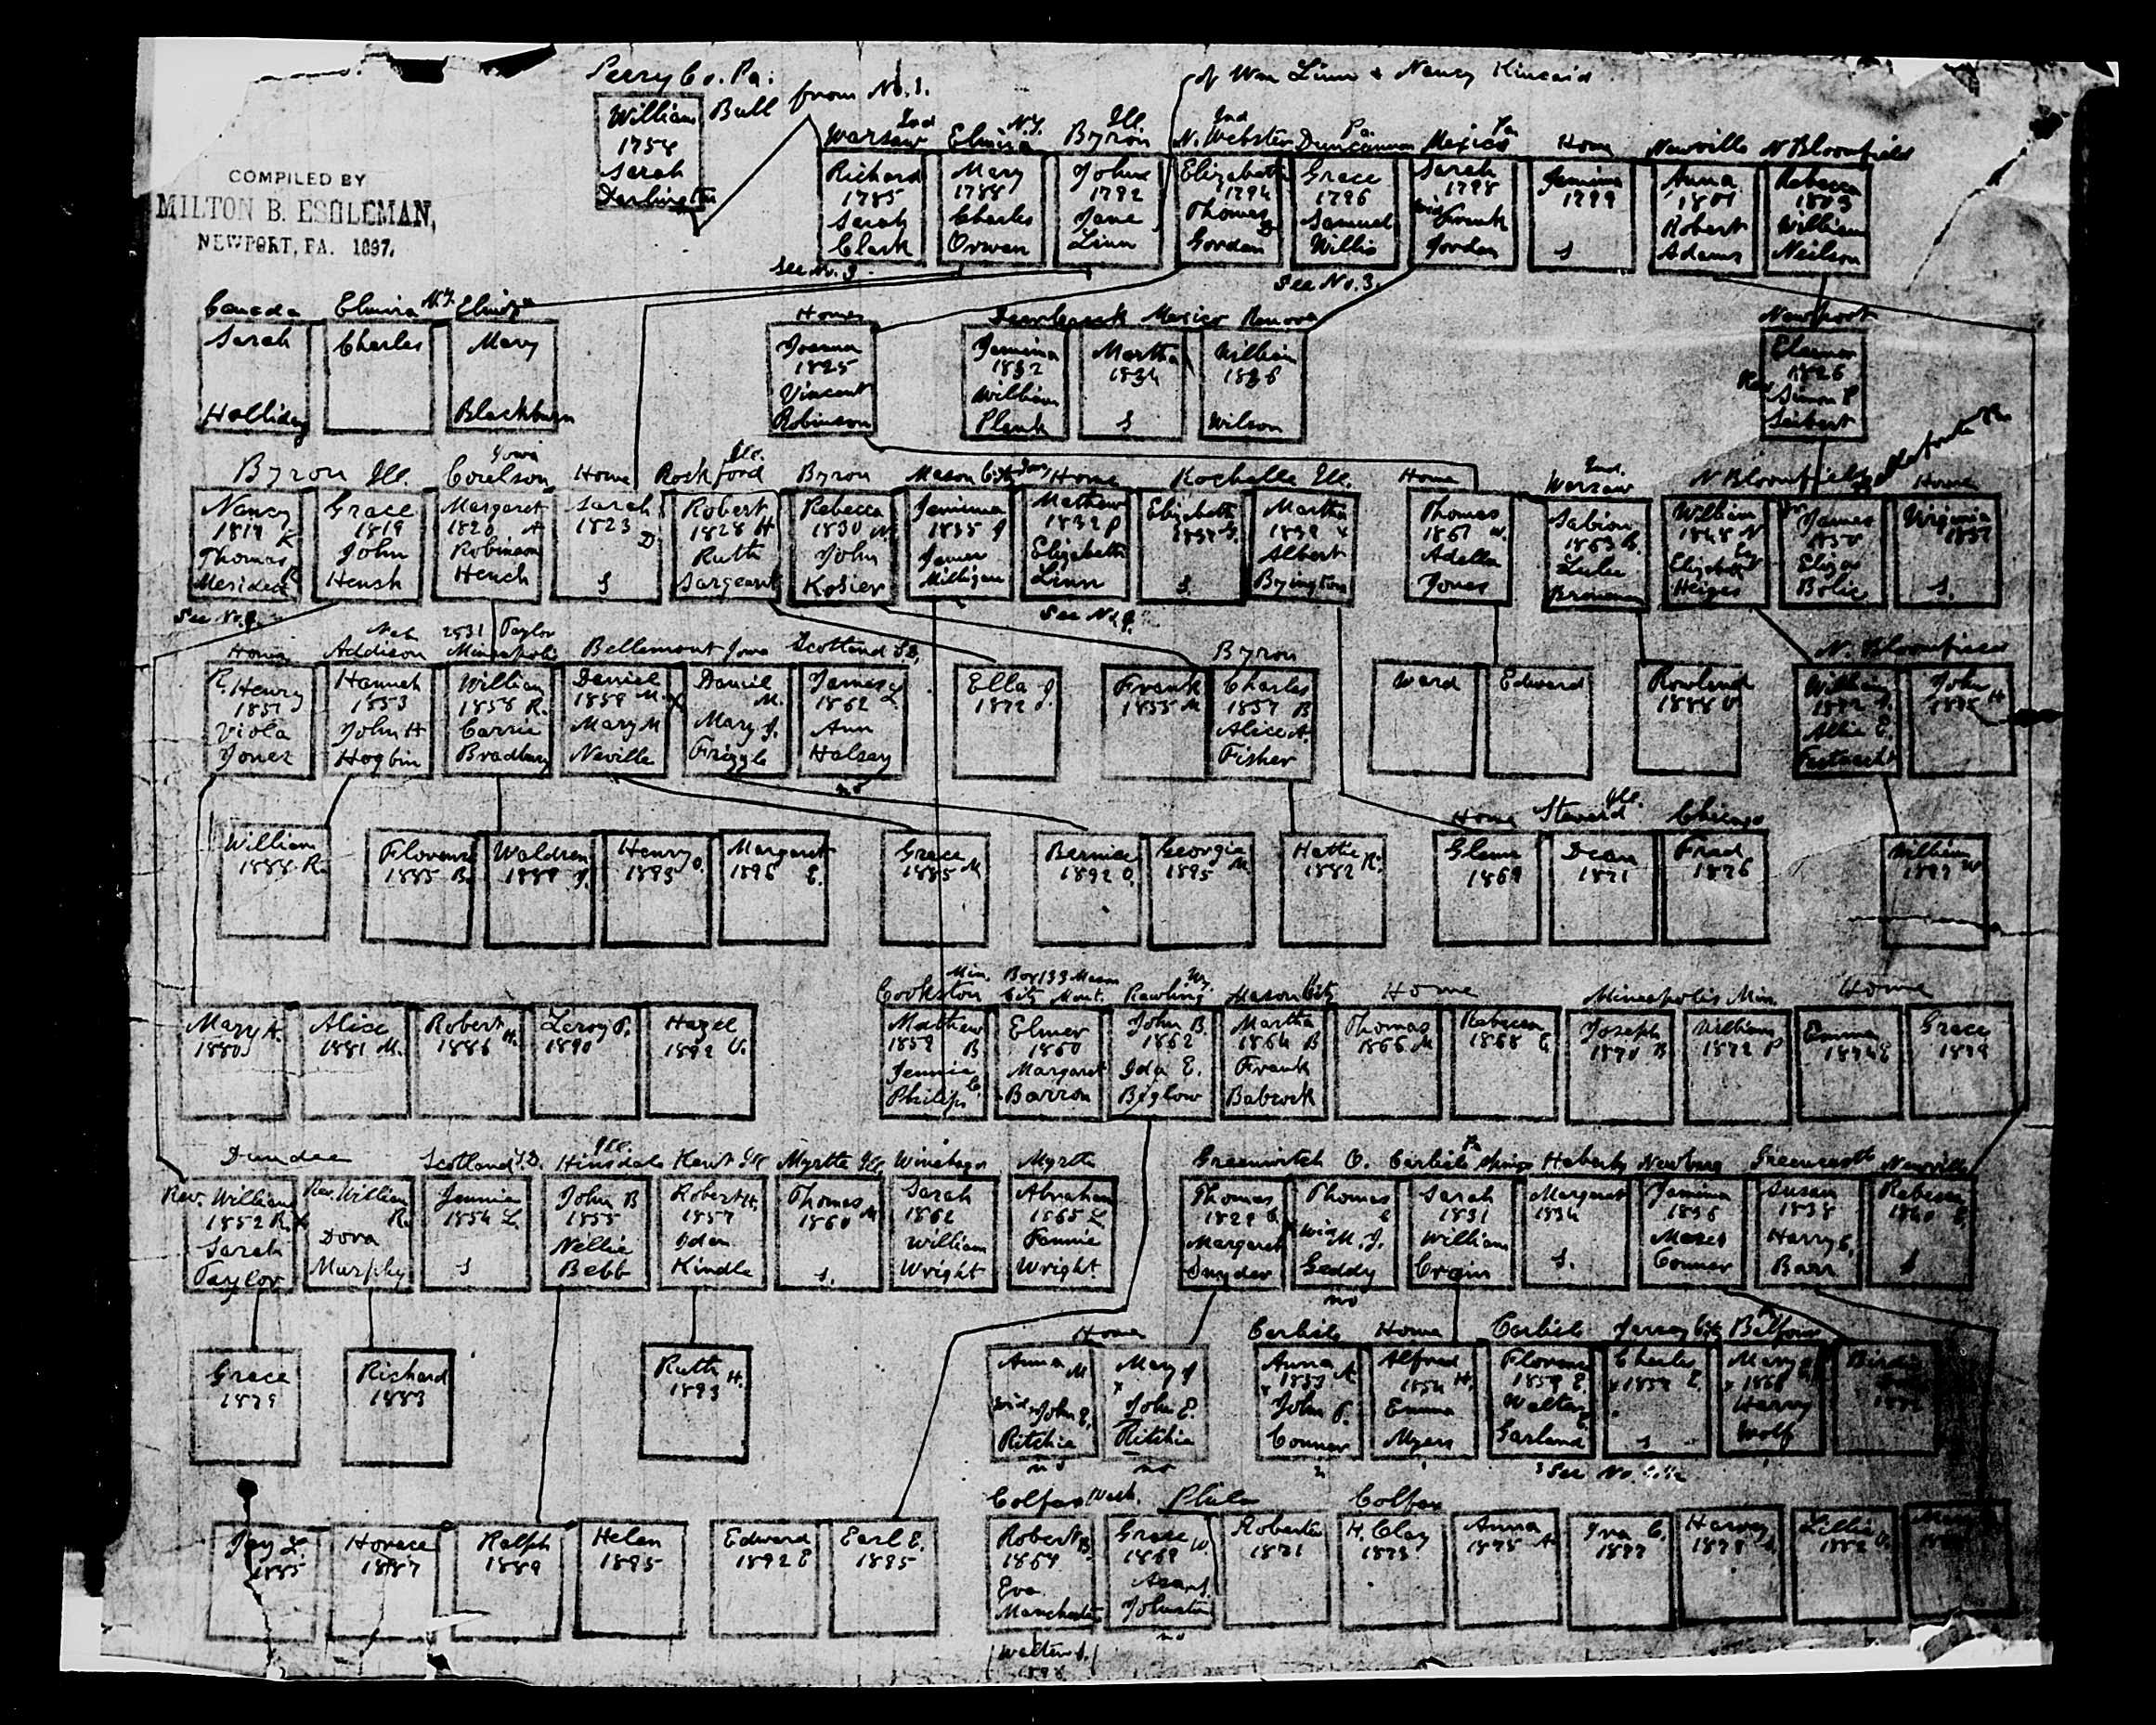 Perry Co. Pa.
of Wm Linn & Nancy Kincaid
from No. 1.
William
1758
Sarah
Darlington
Bull
COMPILED BY
MILTON B. ESHLEMAN,
NEWPORT, PA. 1897.
Ind
Warsaw
N.Y.
Elmira
Ill
Byron
Ind
N. Webster
Pa.
Duncannon
Pa.
Mexico
Home
Newville
N Bloomfield
Richard
1785
Sarah
Clark
Mary
1788
Charles
Orwan
John
1792
Jane
Linn
Elizabeth
1794
Thomas
Gordan
Grace
1796
Samuel
Willis
Sarah
1798
Frank
Jordan
Jemima
1799
S
Anna
1801
Robert
Adams
Rebecca
1803
William
Neilson
See No. 9.
See No. 3.
Canada
Elmira N.Y.
Elmira
Home
Mexico
Renova
Newport
Sarah
Holliday
Charles
Mary
Blackburn
Joanna
1825
Vincent
Robinson
Jemima
1832
William
Plank
Martha
1834
S
William
1836
Wilson
Eleanor
1826
Rev Simon
Seibert
Byron Ill.
Iowa
Coulson
Home
Ill.
Rockford
Byron
Mason City
Home
Rochelle Ill.
Home
Ind.
Warsaw
N Bloomfield
Home
Nancy
1817 K
Thomas
Grace
1819
John
Hensh
Margaret
1820 A
Robinson
Hench
Sarah
1823 D.
S
Robert
1828 H
Ruth
Sargeant
Rebecca
1830 N.
John
Kosier
Jemima
1835 J
James
Milligan
Mathew
P
Elizabeth
Linn
Elizabeth
S.
Martha
1839
Albert
Byington
Thomas
1861 W.
Adella
Jones
1863
Brennan
William
1848 N
Elizabeth
Heiges
James
1850
Eliza
Virginia
S.
See No. 9.
See No. 9.
Home
Neb
Addison
2531 Taylor
Mineapolis
Bellemont Iowa
Scotland S.D.
Byron
N. Bloomfield
Henry
1851
Viola
Jones
Hannah
1853
John H
Hogbin
William
1858 R.
Carrie
Bradbury
Daniel
1859 M.
Mary M
Neville
Daniel
M.
Mary J.
Frizzle
James
1862 L
Ann
Halsey
no
Ella J.
1872
Frank
1855 M
Charles
1857 B
Alice A.
Fisher
Ward
Edward
Rowland
1888
William
Allie E.
John H
1895
Home
Ill.
Steward
Chicago
William
1888 R.
Florence
1885 B.
Waldren
1889 J.
Henry O.
1893
Margaret
1896 E.
Grace
1885 M
Bernice
1892 O.
Georgia
1895 M
Hattie
1882 R.
Glenn
1869
Dean
1871
Fred
1876
William
1897 W
Min.
Cookston
Box 133 Mason
City Mont.
Wy.
Rawling
Mason City
Home
Mineapolis Min.
Home
Mary A.
1880
Alice
1881 M.
Robert H.
1886
Leroy P.
1890
Hazel
1892 V.
Mathew
1859 B
Jennie C.
Philips
Elmer
1860
Margaret
Barron
John B.
1862
Ida E.
Biglow
Martha
1864 B
Frank
Babcock
Thomas
1866 M
Rebecca
1868 C
Joseph
1870 B
William
1872 P
Emma
1874 E
Grace
1879
Dundee
Scotland S.D.
Ill.
Hinsdale
Kent Ill
Myrtle Ill
Winebago
Myrtle
Greenwitch O.
Pa
Carlisle Springs
Newburg
Greencastle
Newville
Rev. William
1852 R.
Sarah
Taylor
Rev. William
R.
Dora
Murphy
Jennie
1854 L.
S
John B
1855
Nellie
Bebb
Robert H.
1857
Iden
Kindle
Thomas
1860 M
S.
Sarah
1862
William
Wright
Abraham
1865 L.
Fannie
Wright
Thomas
1829 C
Margaret
Snyder
Thomas
C
Wid M. J.
Geddy
no
Sarah
1831
William
Crain
Margaret
1834
S.
Jemima
1836
Moses
Conner
Susan
1838
Harry C.
Barr
Rebecca
1840 E.
S
Home
Carlisle
Home
Carlisle
Jersey City
Grace
1879
Richard
1883
Ruth H.
1893
Anna M
Wid John E.
Ritchie
no
Mary J
x
John E.
Ritchie
no
Anna A
1853
John P.
Conner
Alfred
1854 H.
Emma
Myers
Florence
1859 E.
Walter
Garland
Charles
E.
S
Mary
Harry
Wolf
Birdie
See No.
Colfax Wash.
Phila
Colfax
Jay L
1885
Horace
1887
Ralph
1889
Helen
1895
Edward
1892 E
Earl E.
1895
Robert B.
1867
Eva
Manchester
Grace
1869 W.
Asa J.
Johnston
no
Roberta
1871
H. Clay
1873
Anna
1875 A
Iva C.
1877
Harvey
1879
Lillie
1882
Walter S.
1898